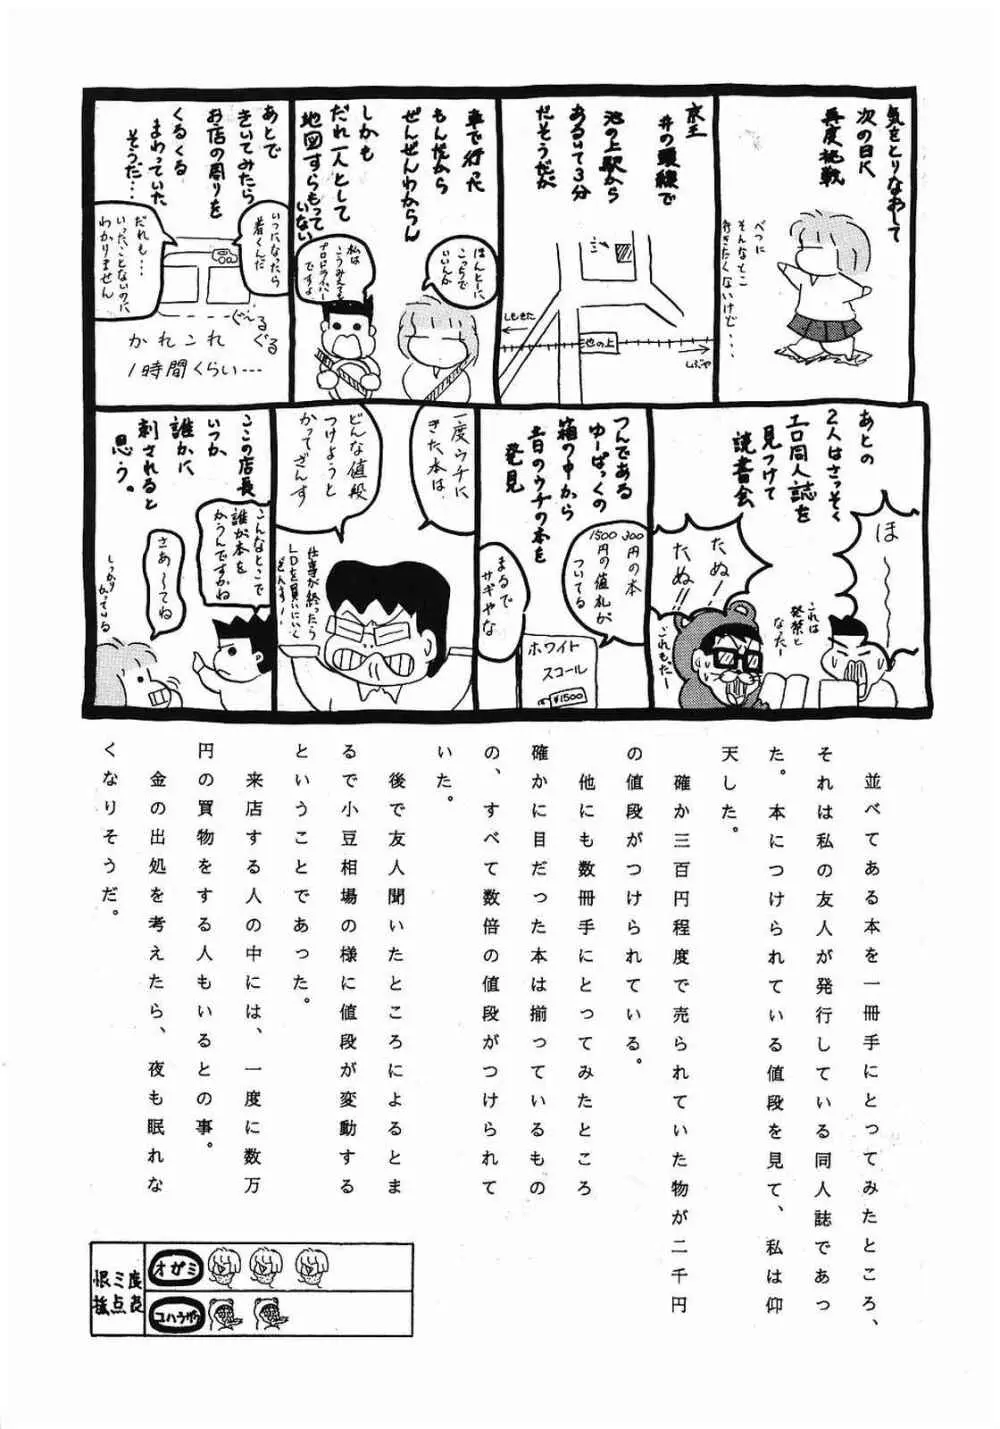 気をとりなおして
次の日に
再度挑戦
べつに
そんなとこ
行きたくないけど・・・・
京王
井の頭線で
池の上駅から
あるいて3分
だそうだが
しもきた
池の上
しぶや
車で行った
もんだから
ぜんぜんわからん
しかも
だれ一人として
地図すらもって
いない
ほんとーに
こっちで
いいんか
私は
こうみえても
プロドライバー
ですよ
あとで
きいてみたら
お店の周りを
くるくる
まわっていた
そうだ…
いつになったら
着くんだ
だれも…
いったことないのに
わかりません
ぐーるぐる
かれこれ
1時間くらい…
あとの
2人はさっそく
エロ同人誌を
見つけて
読書会
ほ〜〜〜
これは
発禁と
なったー
たぬー
たぬ!!
これもだー
つんである
ゆーぱっくの
箱の中から
昔のウチの本を
発見
300円の本
1500円の値札が
ついてる
まるで
サギやな
ホワイト
スコール
¥1500
一度ウチに
きた本は、
どんな値段
つけようと
かってざんす
仕事が終ったら
LDを買いにいく
ざんすー
ここの店長
いつか
誰かに
刺されると
思う。
こんなとこで
誰が本を
かうんですかね
さあ〜てね
しっかり
かっている
並べてある本を一冊手にとってみたところ、
それは私の友人が発行している同人誌であっ
た。本につけられている値段を見て、私は仰
天した。
確か三百円程度で売られていた物が二千円
の値段がつけられている。
他にも数冊手にとってみたところ
確かに目だった本は揃っているもの
の、すべて数倍の値段がつけられて
いた。
後で友人聞いたところによるとま
るで小豆相場の様に値段が変動する
ということであった。
来店する人の中には、一度に数万
円の買物をする人もいるとの事。
金の出処を考えたら、夜も眠れな
くなりそうだ。
オガミ
コハラザワ